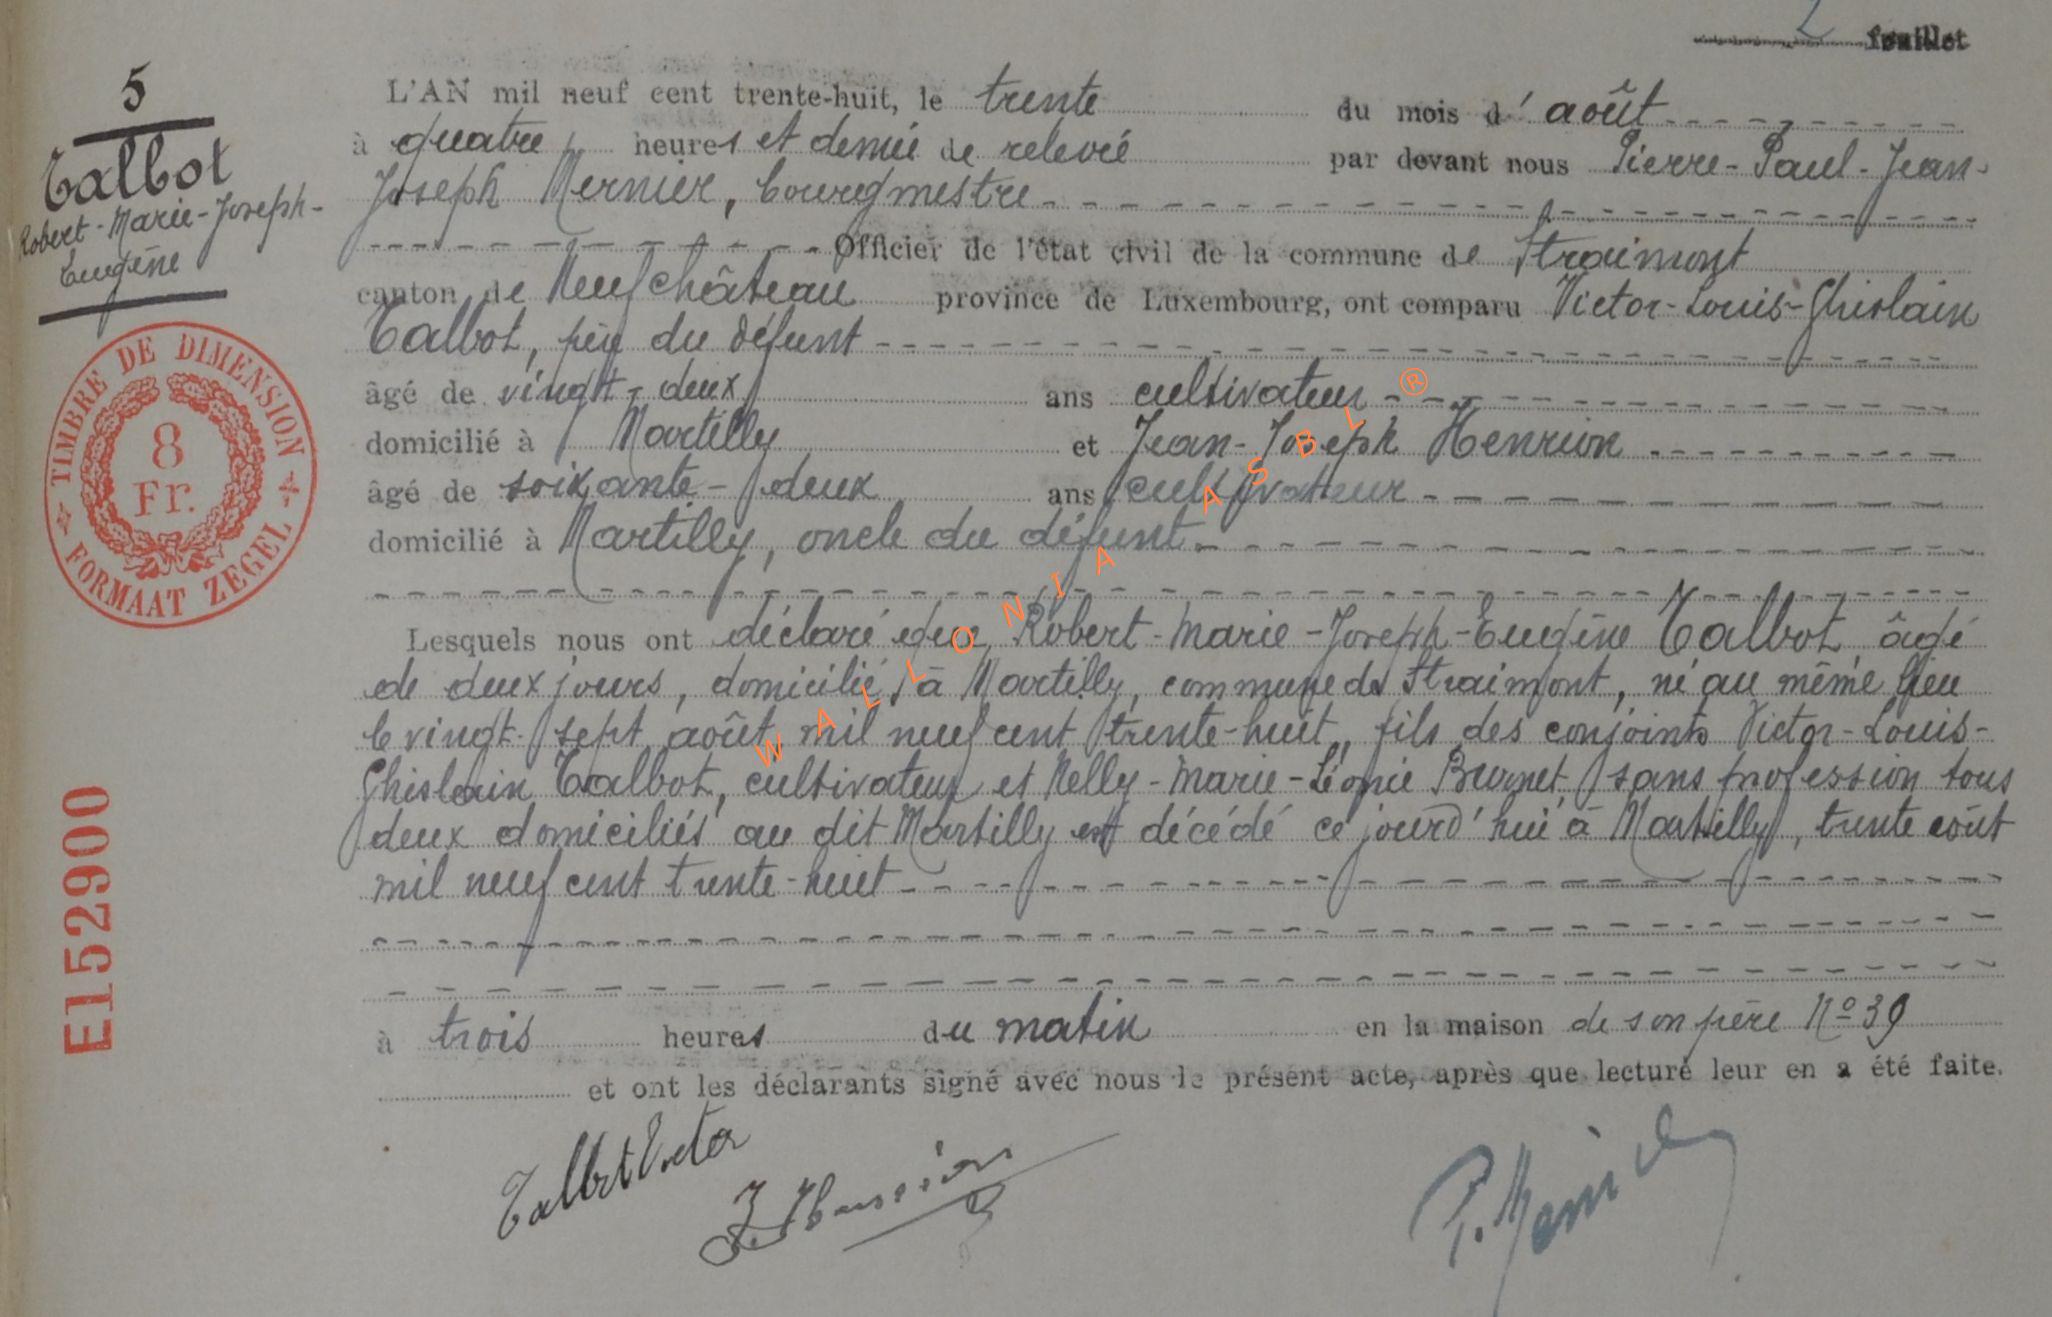 2 feuillet
5
Talbot
Robert-Marie-Joseph-
Eugène
TIMBRE DE DIMENSION
8
Fr.
FORMAAT ZEGEL
E152900
L'AN mil neuf cent trente-huit, le trente du mois d'août
à quatre heures et demie de relevée par devant nous Pierre-Paul-Jean-
Joseph Mernier, bourgmestre
Officier de l'état civil de la commune de Straimont
canton de Neufchâteau province de Luxembourg, ont comparu Victor-Louis-Ghislain
Talbot, père du défunt
âgé de vingt-deux ans cultivateur
domicilié à Martilly et Jean-Joseph Henrion
âgé de soixante-deux ans cultivateur
domicilié à Martilly, oncle du défunt
Lesquels nous ont déclaré que Robert-Marie-Joseph-Eugène Talbot, âgé
de deux jours, domicilié à Martilly, commune de Straimont, né au même lieu
le vingt-sept août mil neuf cent trente-huit, fils des conjoints Victor-Louis-
Ghislain Talbot, cultivateur et Nelly-Marie-Léonie Brunet, sans profession tous
deux domiciliés au dit Martilly est décédé ce jourd'hui à Martilly, trente août
mil neuf cent trente-huit
à trois heures du matin en la maison de son père No 39
et ont les déclarants signé avec nous le présent acte, après que lecture leur en a été faite.
Talbot Victor
J. Henrion
P. Mernier
WALLONIA ASBL ®